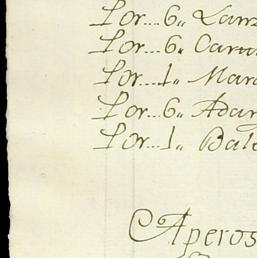 Por... 6,, Lanz
Por... 6,, Caru
Por... 1,, Mar
Por... 6,, Adar
Por... 1,, Bal
Aperos